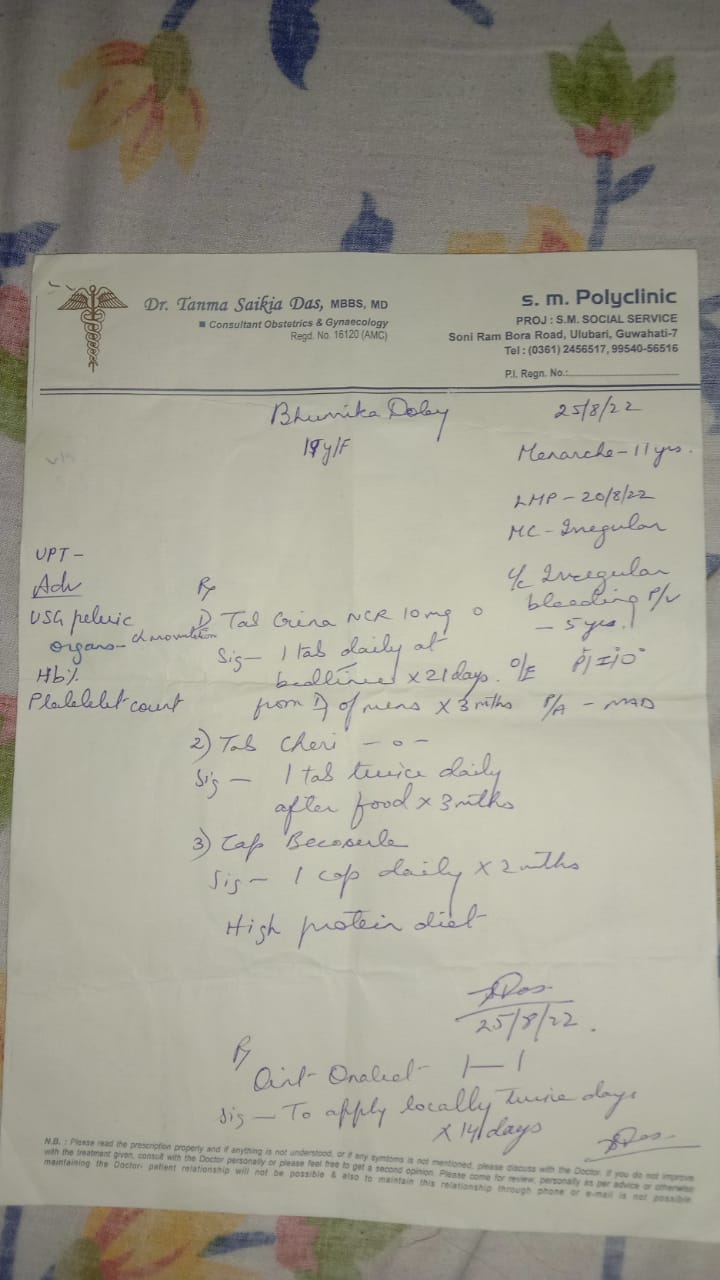 Dr. Tanma Saikia Das, MBBS, MD
■ Consultant Obstetrics & Gynaecology
Regd. No. 16120 (AMC)
s. m. Polyclinic
PROJ : S.M. SOCIAL SERVICE
Soni Ram Bora Road, Ulubari, Guwahati-7
Tel : (0361) 2456517, 99540-56516
P.I. Regn. No.:
Bhumika Doley
25/8/22
19y/F
Menarche - 11 yrs.
LMP - 20/8/22
MC - Irregular
c/c Irregular
bleeding P/V
- 5 yrs.
O/E
P/A - NAD
UPT -
Adv
USG pelvic
organs -
Hb%
Platelelet count
Rx
1) Tab Crina NCR 10mg
Sig - 1 tab daily at
bedtime x 21 days.
from of mens x 3 mths
2) Tab Cheri - o -
Sig - 1 tab twice daily
after food x 3 mths
3) Cap Becosule
Sig - 1 cap daily x 2 mths
High protein diet
25/8/22.
Rx
Oint
Sig - To apply locally twice days
x 14 days
N.B. : Please read the prescription properly and if anything is not understood, or if any symtoms is not mentioned, please discuss with the Doctor. If you do not improve
with the treatment given, consult with the Doctor personally or please feel free to get a second opinion. Please come for review, personally as per advice or otherwise
maintaining the Doctor- patient relationship will not be possible & also to maintain this relationship through phone or e-mail is not possible